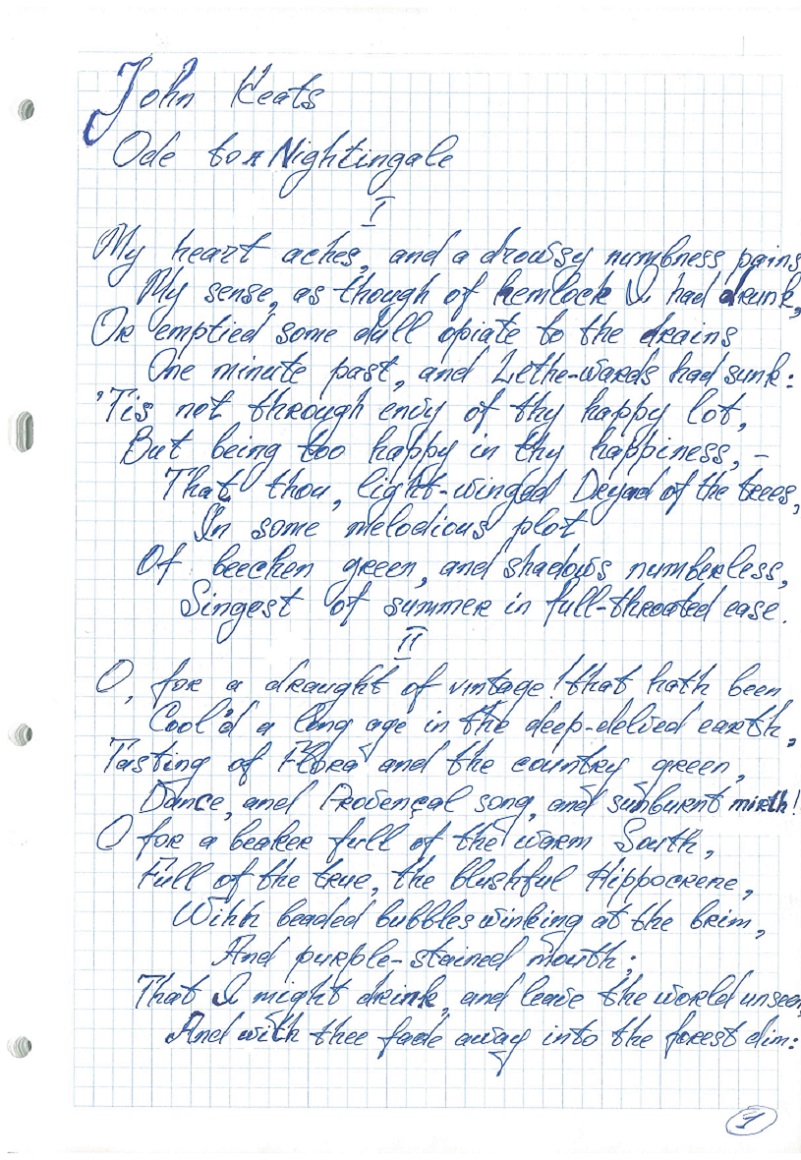 John Keats
Ode to a Nightingale
I
My heart aches, and a drowsy numbness pains
My sense, as though of hemlock I had drunk,
Or emptied some dull opiate to the drains
One minute past, and Lethe-wards had sunk:
'Tis not through envy of thy happy lot,
But being too happy in thy happiness, –
That thou, light-winged Dryad of the trees,
In some melodious plot
Of beechen green, and shadows numberless,
Singest of summer in full-throated ease.
II
O, for a draught of vintage! that hath been
Cool'd a long age in the deep-delved earth,
Tasting of Flora and the country green,
Dance, and Provençal song, and sunburnt mirth!
O for a beaker full of the warm South,
Full of the true, the blushful Hippocrene,
With beaded bubbles winking at the brim,
And purple-stained mouth;
That I might drink, and leave the world unseen,
And with thee fade away into the forest dim:
1